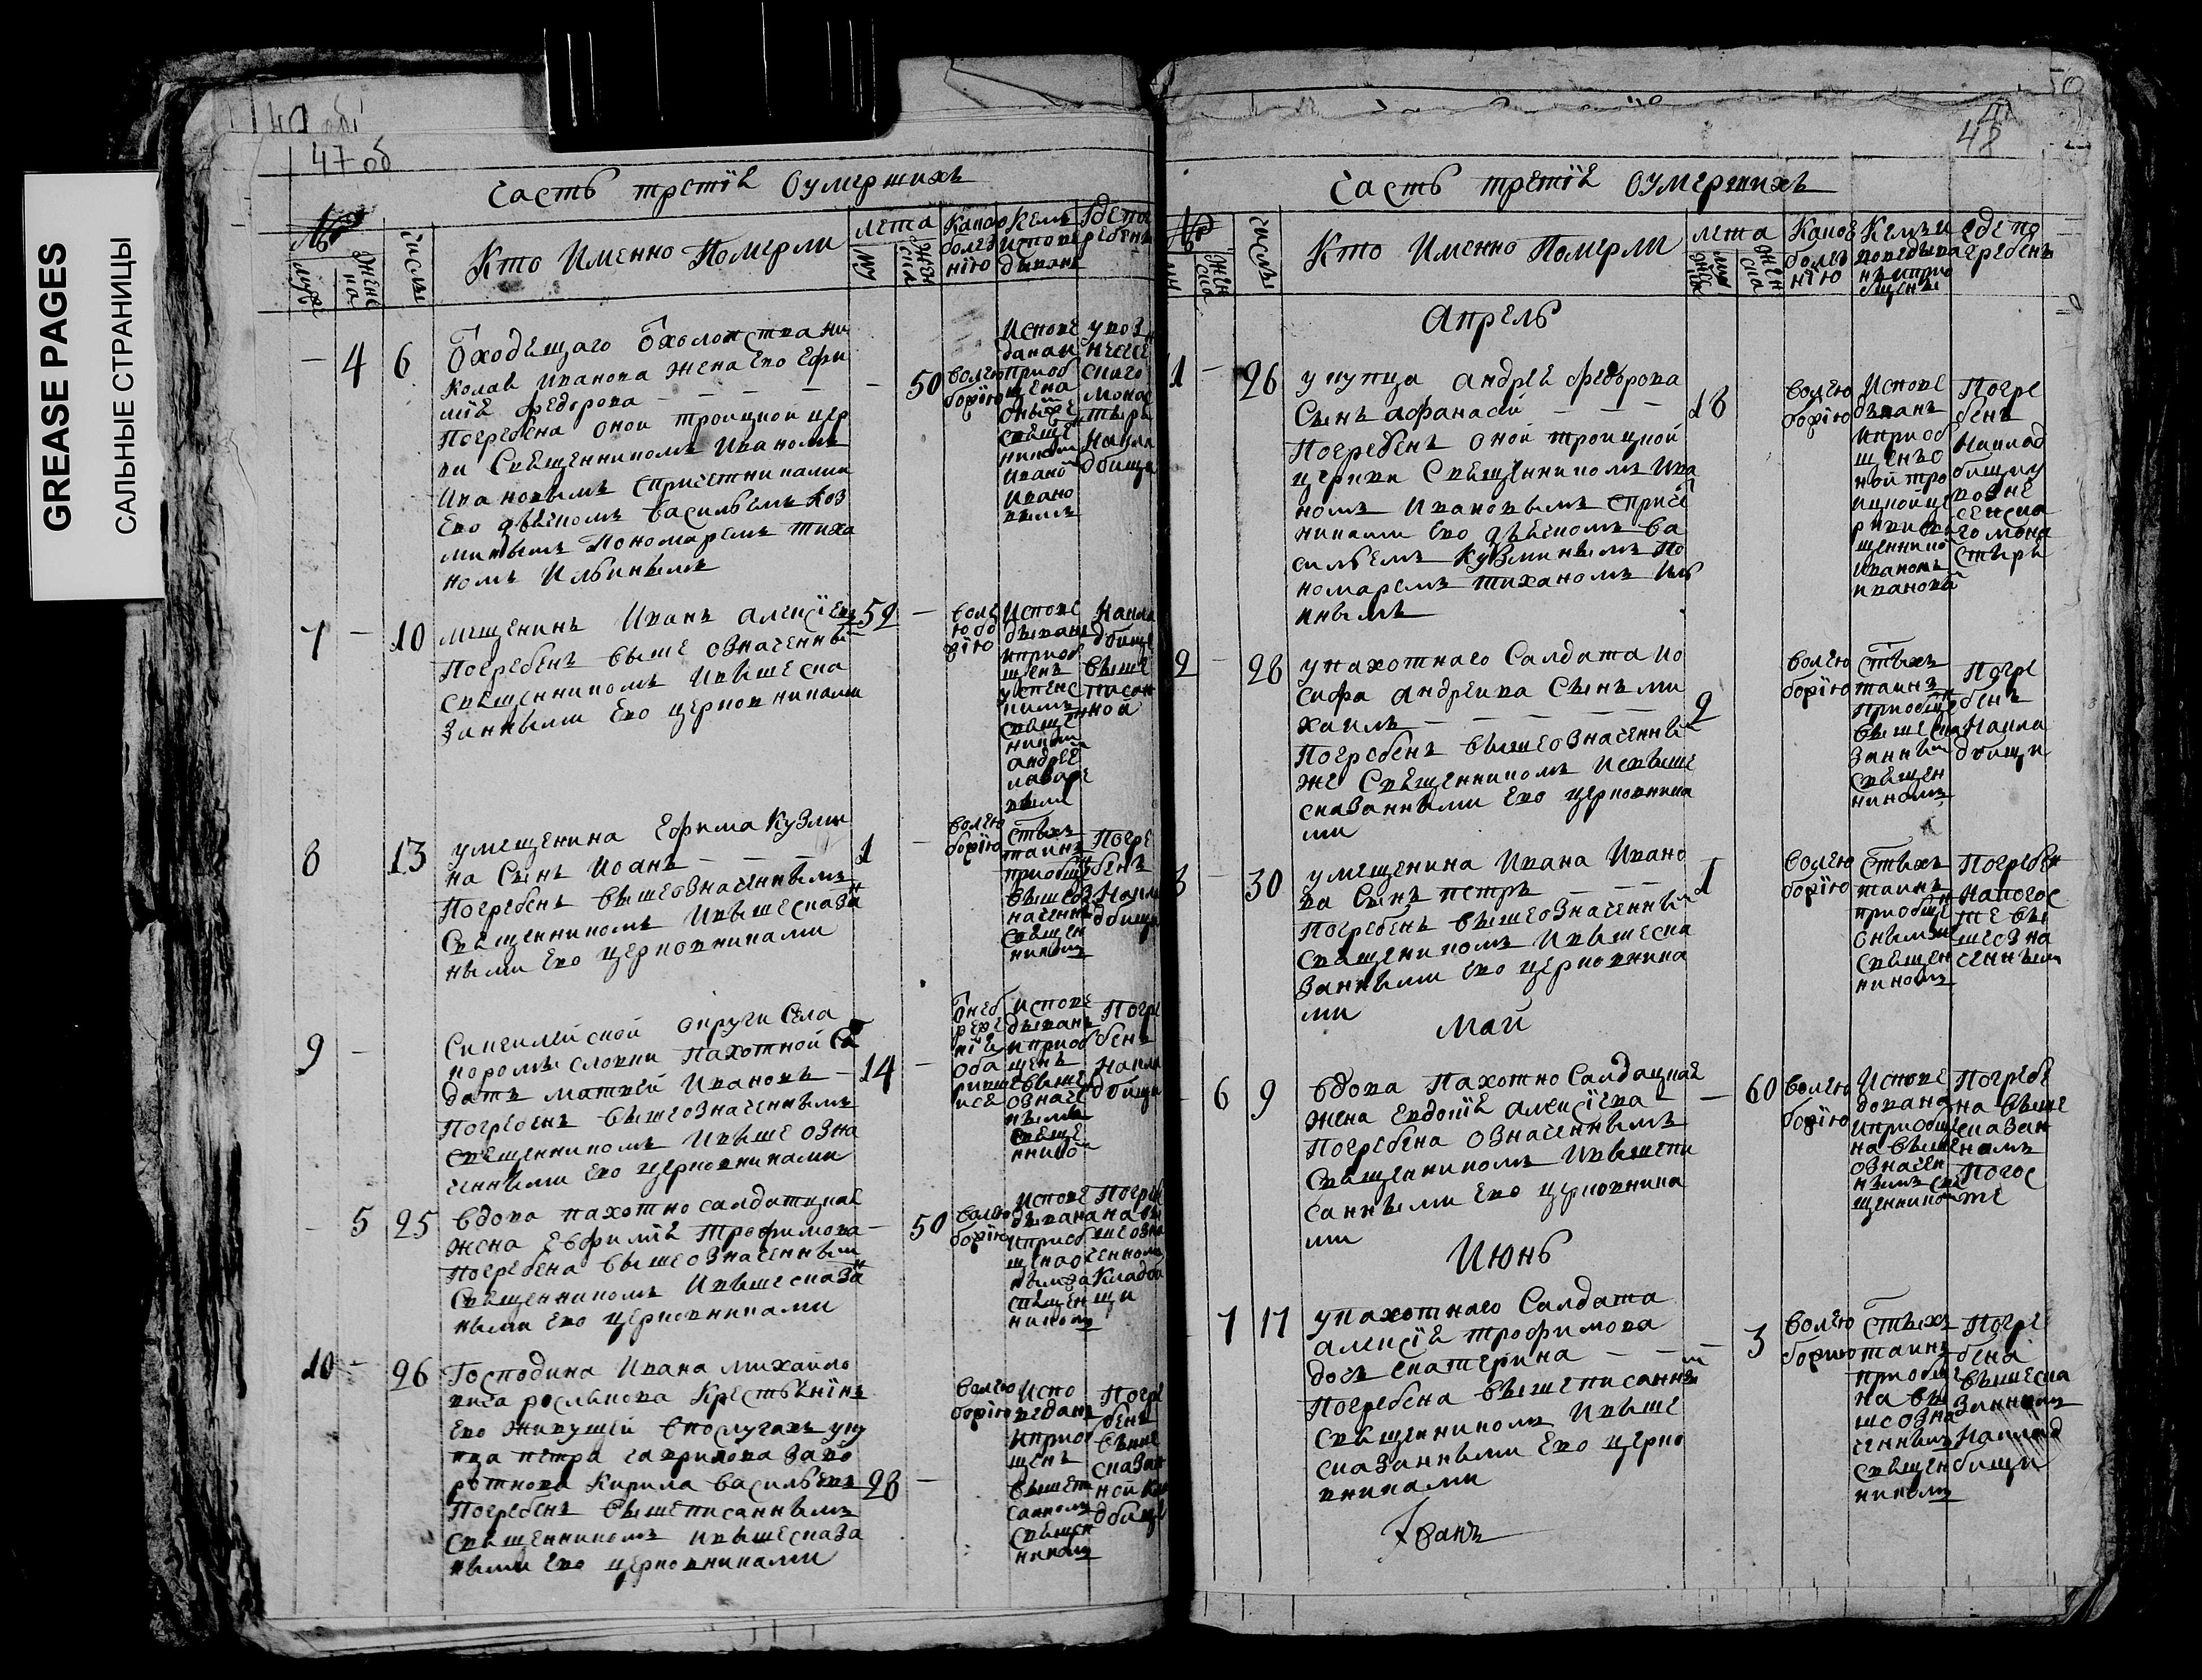 GREASE PAGES
САЛЬНЫЕ СТРАНИЦЫ
47 об
часть третїя оумершихъ
№
муж
женс
ка
числы
Кто Именно Померли
лета
му
жен
ска
Какою
болез
нїю
Кемъ
испове
дываны
где по
гребены
4 6
Отходящаго Отхолопства ни
колая Иванова жена Ево Ефи
мїя федорова
Погребена оной троицкой цер
кви Священникомъ Иваномъ
Ивановымъ спричетниками
Ево дьячкомъ васильемъ коз
миным Пономаремъ тиха
номъ Ильинымъ
50
волею
божїею
Испове
данаи
приоб
щена
онымже
свяще
ником
Ивано
Ивано
вымъ
увозн
несен
скаго
монас
тыря
Накла
дбищи
7 10
мещенинъ Иванъ алексїевъ 59
Погребенъ выше означенны
священникомъ Ивыше ска
занными Ево церковниками
волe
юбо
жїю
Испове
дыванъ
иприоб
щенъ
успенс
кимъ
свяще
ником
андрее
лазаре
вым
Накла
дбище
выше
писан
ной
8 13
умещенина Ефима Кузми
на Сынъ Иоанъ 1
Погребенъ вышеозначеннымъ
Священникомъ Ивышесказа
ными Ево церковниками
волею
божїю
Стыхъ
таинъ
приобщ
вышеоз
наченн
священ
никомъ
Погре
бенъ
Накла
дбищи
9
Сингилейской округи Села
поромы словки Пахотной са
датъ матвей Ивановъ 14
Погребенъ вышеозначеннымъ
священникомъ Ивыше озна
ченными Ево церковниками
Испове
дыванъ
иприоб
щенъ
выше
означе
нымъ
свяще
нико
Погре
бенъ
Накла
дбищи
5 25
вдова пахотно салдатцкая
жена Евфимїя Трофимова
Погребена вышеозначенным
Священникомъ Ивышесказа
ными Ево церковниками
50
волею
божїю
Испове
дывана
иприоб
щена
священ
никомъ
Погреб
на вы
шеозна
ченном
Кладби
щи
10 26
Господина Ивана михайло
вича рослякова Крестьянинъ
Ево живущей вуслугахъ уку
пца петра гаврилова заво
ротнова Кирила васильевъ 28
Погребенъ вышеписаннымъ
Священникомъ ивышесказа
ными Ево церковниками
волею
божїю
Испо
веданъ
иприоб
щенъ
вышепи
санномъ
священ
никомъ
Погре
бенъ
выше
сказан
ной кла
дбище
50
48
часть третїя оумершихъ
№
му
жен
ска
числы
Кто Именно Померли
лета
жен
ска
Какою
болез
нїю
Кемъ и
поведыва
ныиприо
бщены
где по
гребены
Апрель
1 26
укупца андрея федорова
Сынъ афанасей 18
Погребенъ оной троицкой
церкви Священникомъ Ива
номъ Ивановымъ спричет
никами Ево дьячкомъ ва
сильемъ Кузминымъ По
номаремъ тиханомъ Иль
инымъ
волею
божїю
Испове
дыванъ
иприоб
щенъо
ной тро
ицкой це
ркви свя
щеннико
Иваномъ
ивановы
Погре
бенъ
Наклад
бищиу
вознe
сенска
го мона
стыря
2 28
упахотнаго Салдата ио
сифа андреива Сынъ ми
хаилъ 2
Погребенъ вышеозначенны
же Священникомъ Исвыше
сказанными Ево церковника
ми
волею
божїю
Стыхъ
таинъ
приобще
вышеска
занным
священ
никомъ
Погре
бенъ
Накла
дбищи
3 30
умещенина Ивана Ивано
ва Сынъ петръ 1
Погребенъ вышеозначенны
священикомъ Ивышеска
занными Ево церковника
ми
волею
божїю
Стыхъ
таинъ
приобще
онымже
священ
никомъ
Погребен
Напогос
те вы
шеозна
ченным
май
6 9
вдова Пахотно Салдацкая
жена Евдокїя алексїева
Погребена означеннымъ
Священникомъ Ивышепи
санными Ево церковника
ми
60
волею
божїю
Испове
дована
иприобще
на выше
означен
нымъ свя
щеннико
Погребе
на выше
сказан
номъ
Погос
те
Июнь
7 17
упахотнаго Салдата
алексїя трофимова
дочь екатерина
Погребена вышеписанны
священникомъ Ивыше
сказанными Ево церко
вниками
3
волею
божию
Стыхъ
таинъ
приобще
на вы
шеозна
ченным
священ
никомъ
Погре
бена
вышеска
занном
Наклад
бищи
Іванъ